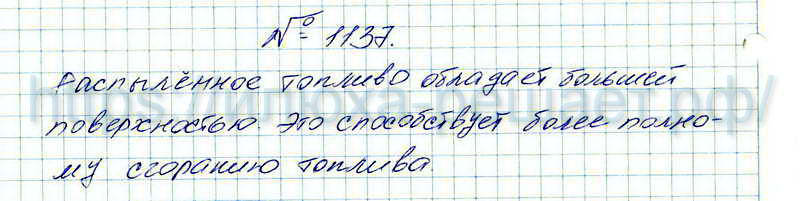 № 1137.
Распылённое топливо обладает большей
поверхностью. Это способствует более полно-
му сгоранию топлива.